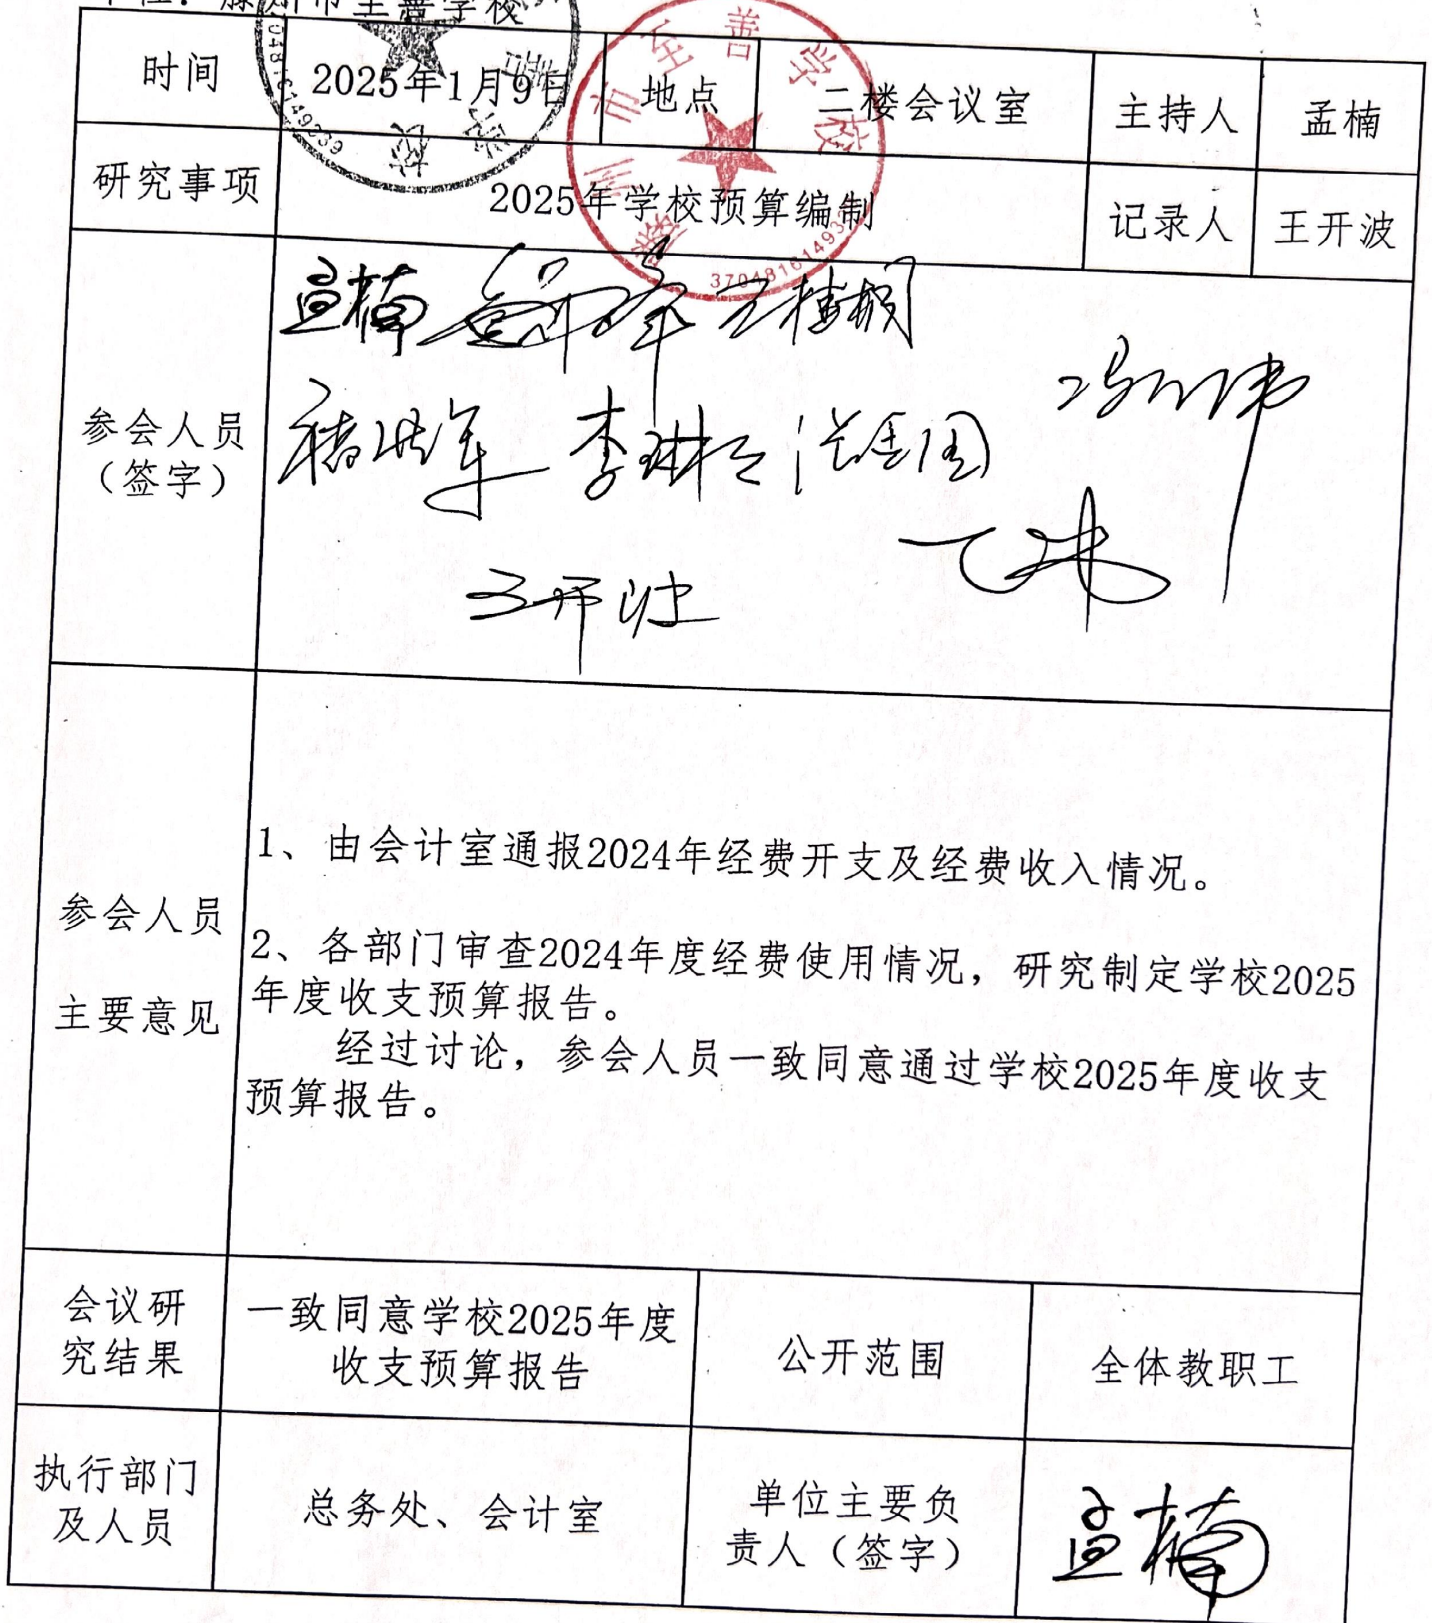 单位：滕州市至善学校
时间 2025年1月9日 地点 二楼会议室 主持人 孟楠
研究事项 2025年学校预算编制 记录人 王开波
滕州市至善学校
参会人员
（签字）
孟楠
李琳
参会人员
主要意见
1、由会计室通报2024年经费开支及经费收入情况。
2、各部门审查2024年度经费使用情况，研究制定学校2025
年度收支预算报告。
经过讨论，参会人员一致同意通过学校2025年度收支
预算报告。
会议研
究结果
一致同意学校2025年度
收支预算报告
公开范围
全体教职工
执行部门
及人员
总务处、会计室
单位主要负
责人（签字）
孟楠